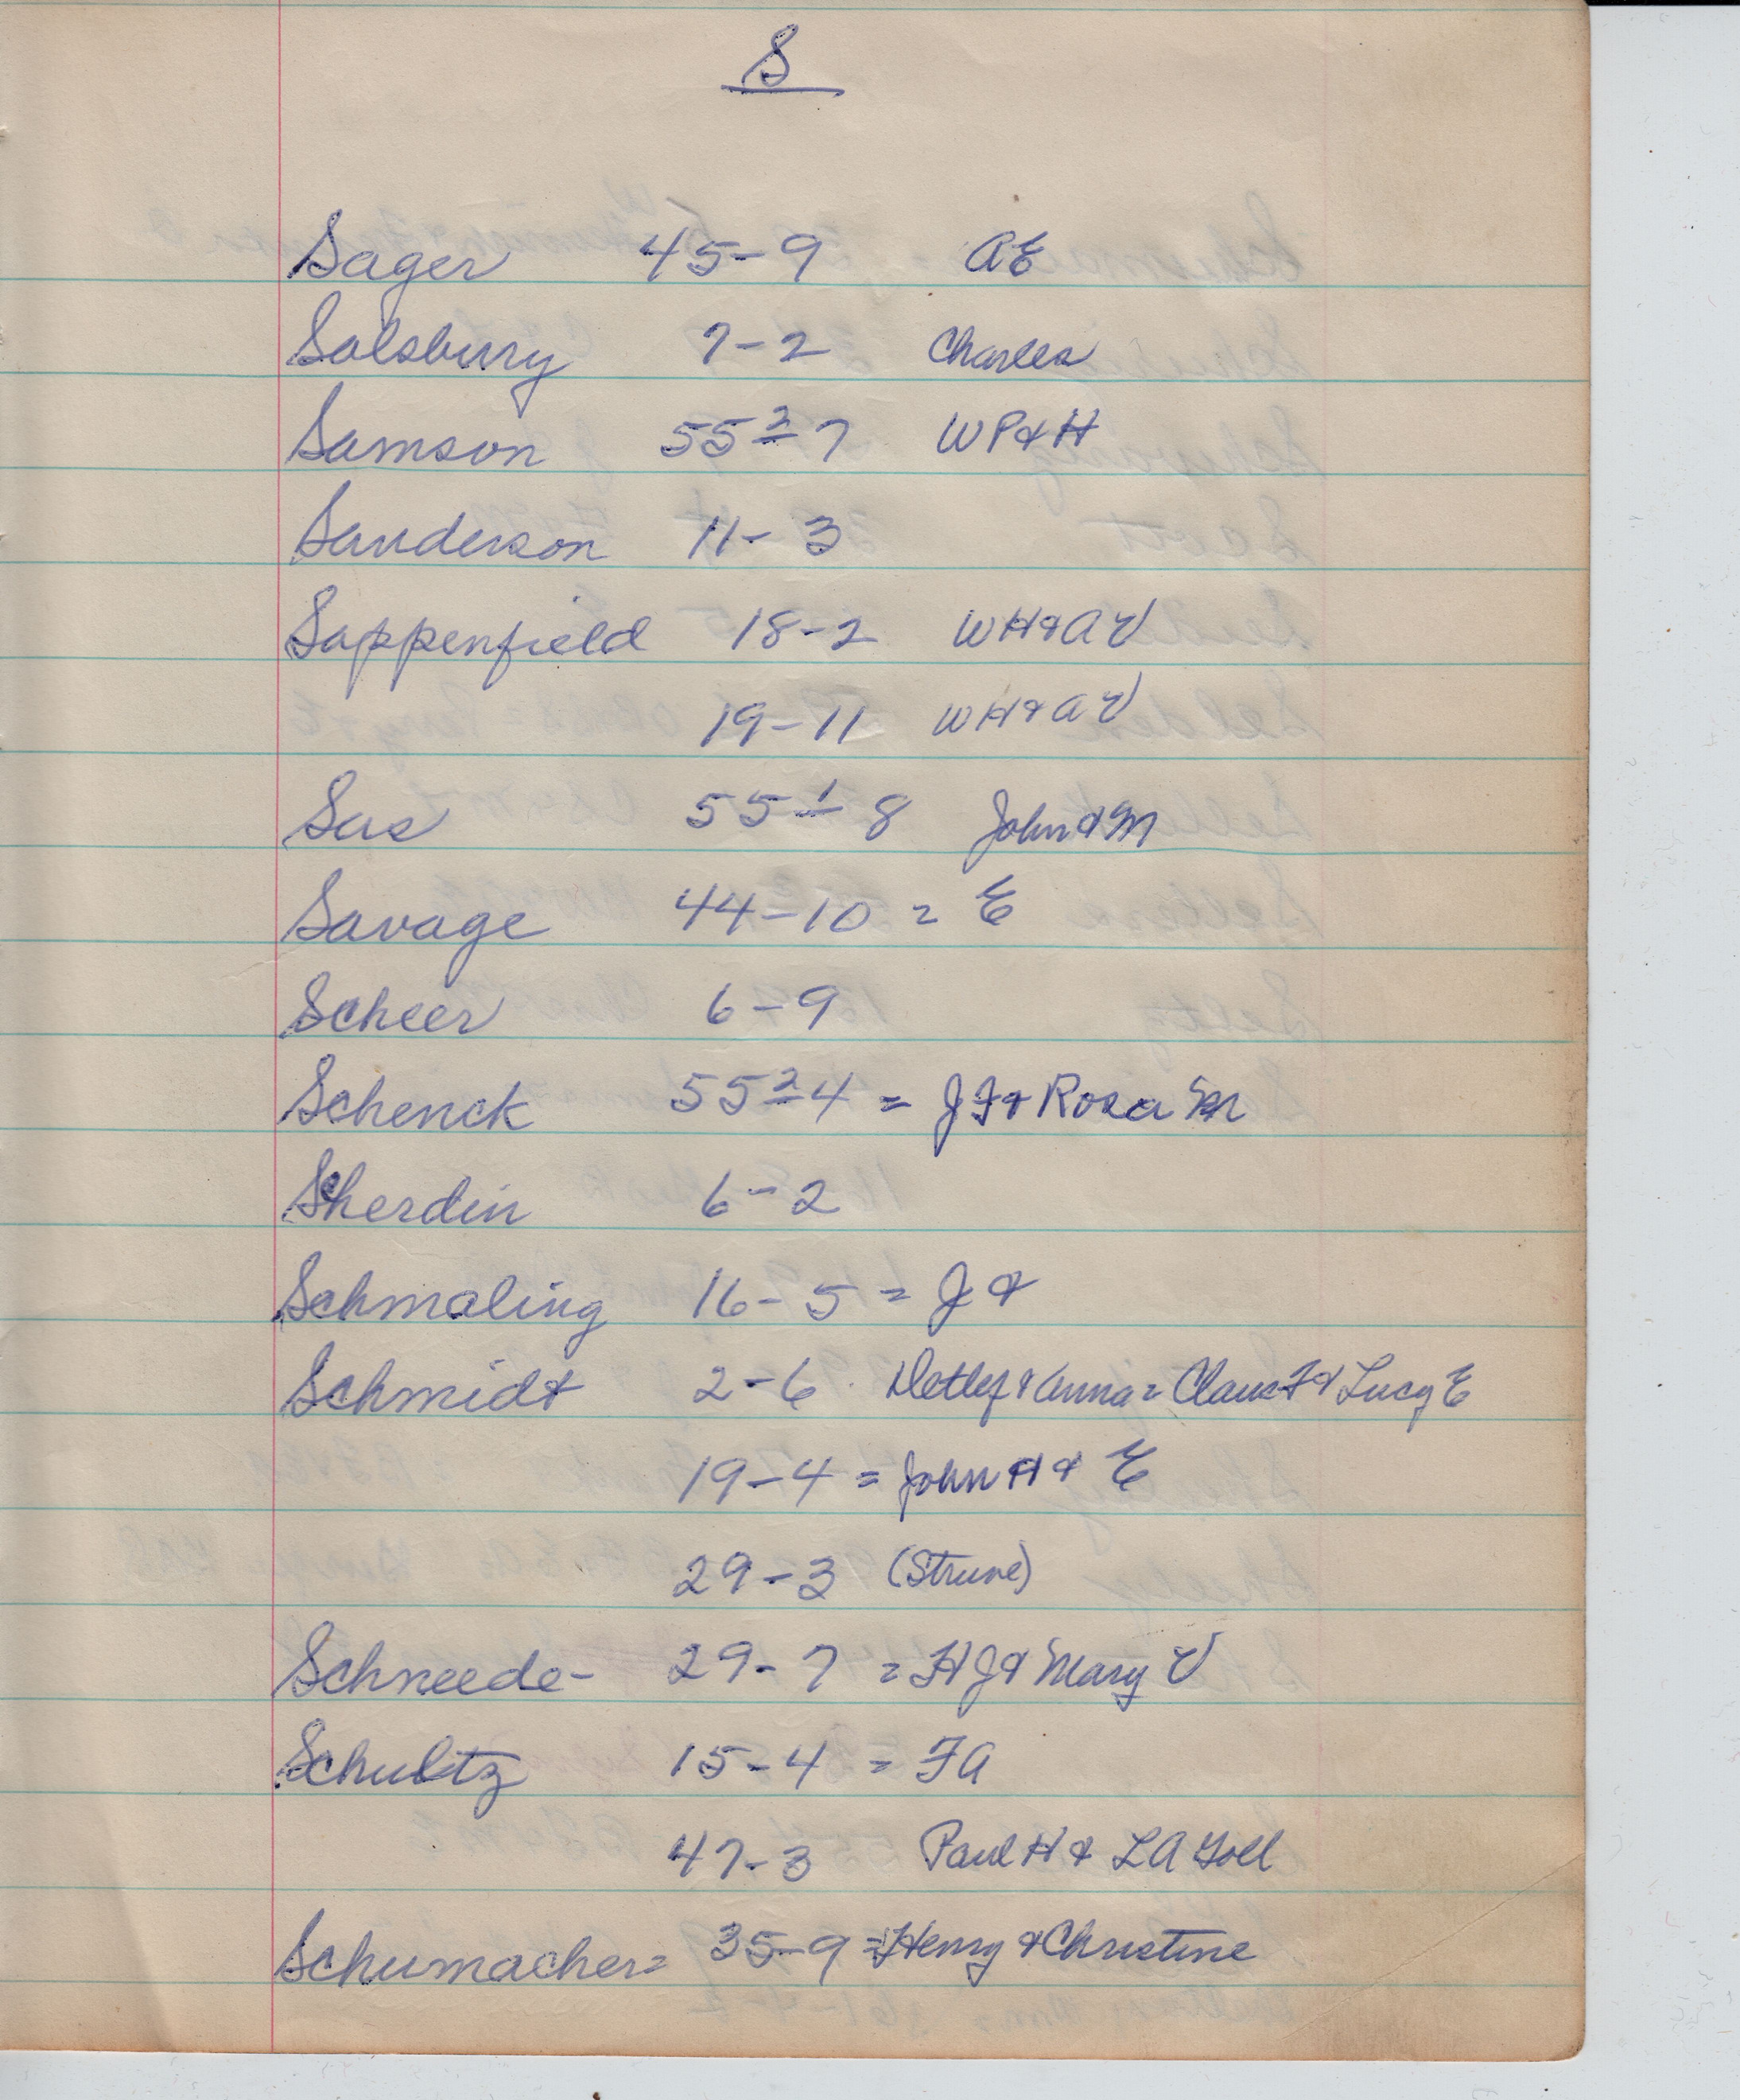 S
Sager 45-9 AE
Salsbury 7-2 Charles
Samson 55²-7 WP&H
Sanderson 11-3
Sappenfield 18-2 WH&AV
19-11 WH&AV
Sas 55¹-8 John&M
Savage 44-10 = E
Scheer 6-9
Schenck 55²-4 = JF& Rosa M
Scherdin 6-2
Schmaling 16-5 = J &
Schmidt 2-6 Detlef & Anna = Claus F & Lucy E
19-4 = John H & E
29-3 (Struve)
Schneede- 29-7 = HJ& Mary V
Schultz 15-4 = FA
47-3 Paul H & LA
Schumacher= 35-9=Henry &Christine